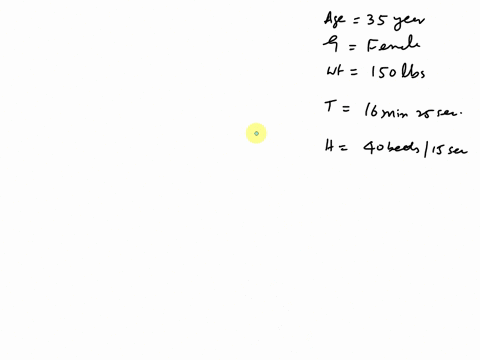 Age = 35 year
G = Female
Wt = 150 lbs
T = 16 min 25 sec.
H = 40 beats / 15 sec